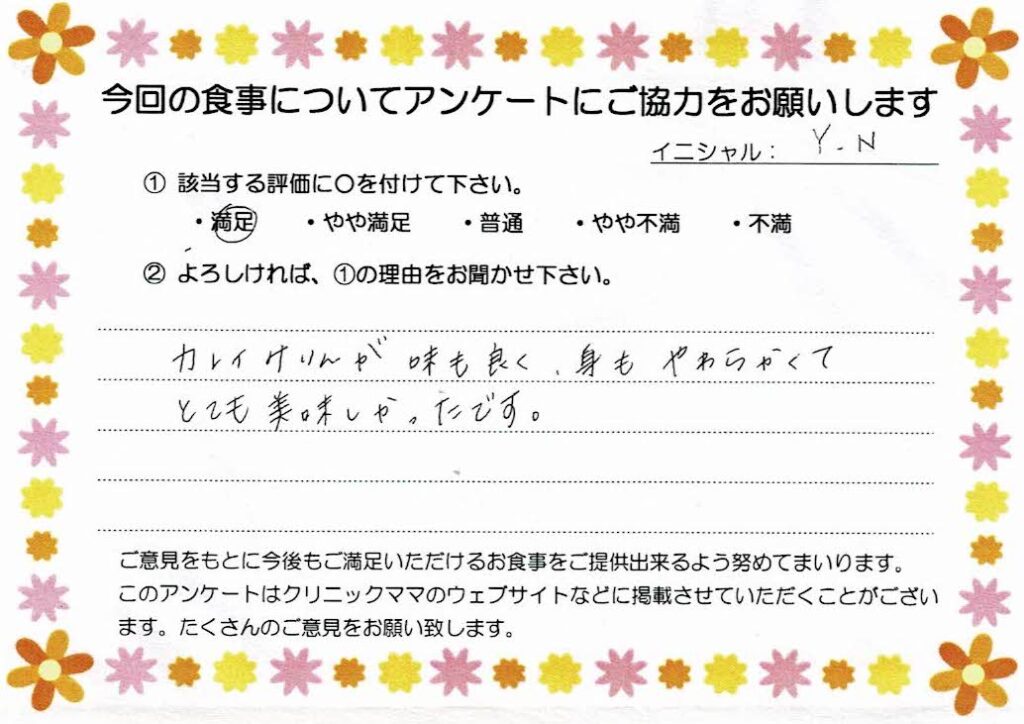 今回の食事についてアンケートにご協力をお願いします
イニシャル： Y.N
① 該当する評価に〇を付けて下さい。
・満足 ・やや満足 ・普通 ・やや不満 ・不満
② よろしければ、①の理由をお聞かせ下さい。
カレイけりんが 味も良く、身も やわらかくて
とても美味しかったです。
ご意見をもとに今後もご満足いただけるお食事をご提供出来るよう努めてまいります。
このアンケートはクリニックママのウェブサイトなどに掲載させていただくことがござい
ます。たくさんのご意見をお願い致します。